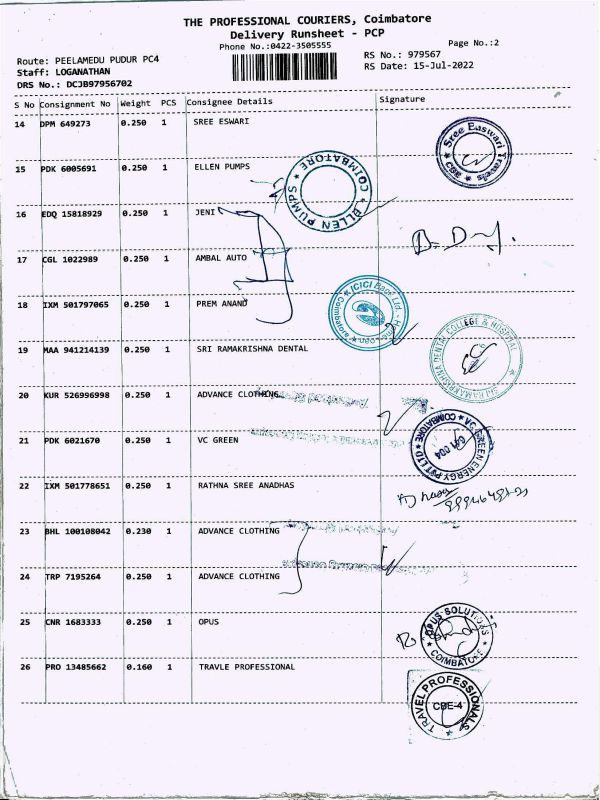 THE PROFESSIONAL COURIERS, Coimbatore
Delivery Runsheet - PCP
Phone No.:0422-3505555
Page No.:2
Route: PEELAMEDU PUDUR PC4
RS No.: 979567
Staff: LOGANATHAN
RS Date: 15-Jul-2022
DRS No.: DCJB97956702
S No Consignment No Weight PCS Consignee Details Signature
14 DPM 649273 0.250 1 SREE ESWARI
Sree Easwari Travels CBE
15 PDK 6005691 0.250 1 ELLEN PUMPS
ELLEN PUMPS COIMBATORE
16 EDQ 15818929 0.250 1 JENI
17 CGL 1022989 0.250 1 AMBAL AUTO
18 IXM 501797065 0.250 1 PREM ANAND
ICICI Bank Ltd
19 MAA 941214139 0.250 1 SRI RAMAKRISHNA DENTAL
SRI RAMAKRISHNA DENTAL COLLEGE & HOSPITAL
20 KUR 526996998 0.250 1 ADVANCE CLOTHING
21 PDK 6021670 0.250 1 VC GREEN
VC GREEN ENERGY PVT LTD COIMBATORE 641 004
22 IXM 501778651 0.250 1 RATHNA SREE ANADHAS
23 BHL 100108042 0.230 1 ADVANCE CLOTHING
24 TRP 7195264 0.250 1 ADVANCE CLOTHING
25 CNR 1683333 0.250 1 OPUS
OPUS SOLUTIONS COIMBATORE
26 PRO 13485662 0.160 1 TRAVLE PROFESSIONAL
TRAVEL PROFESSIONALS CBE-4